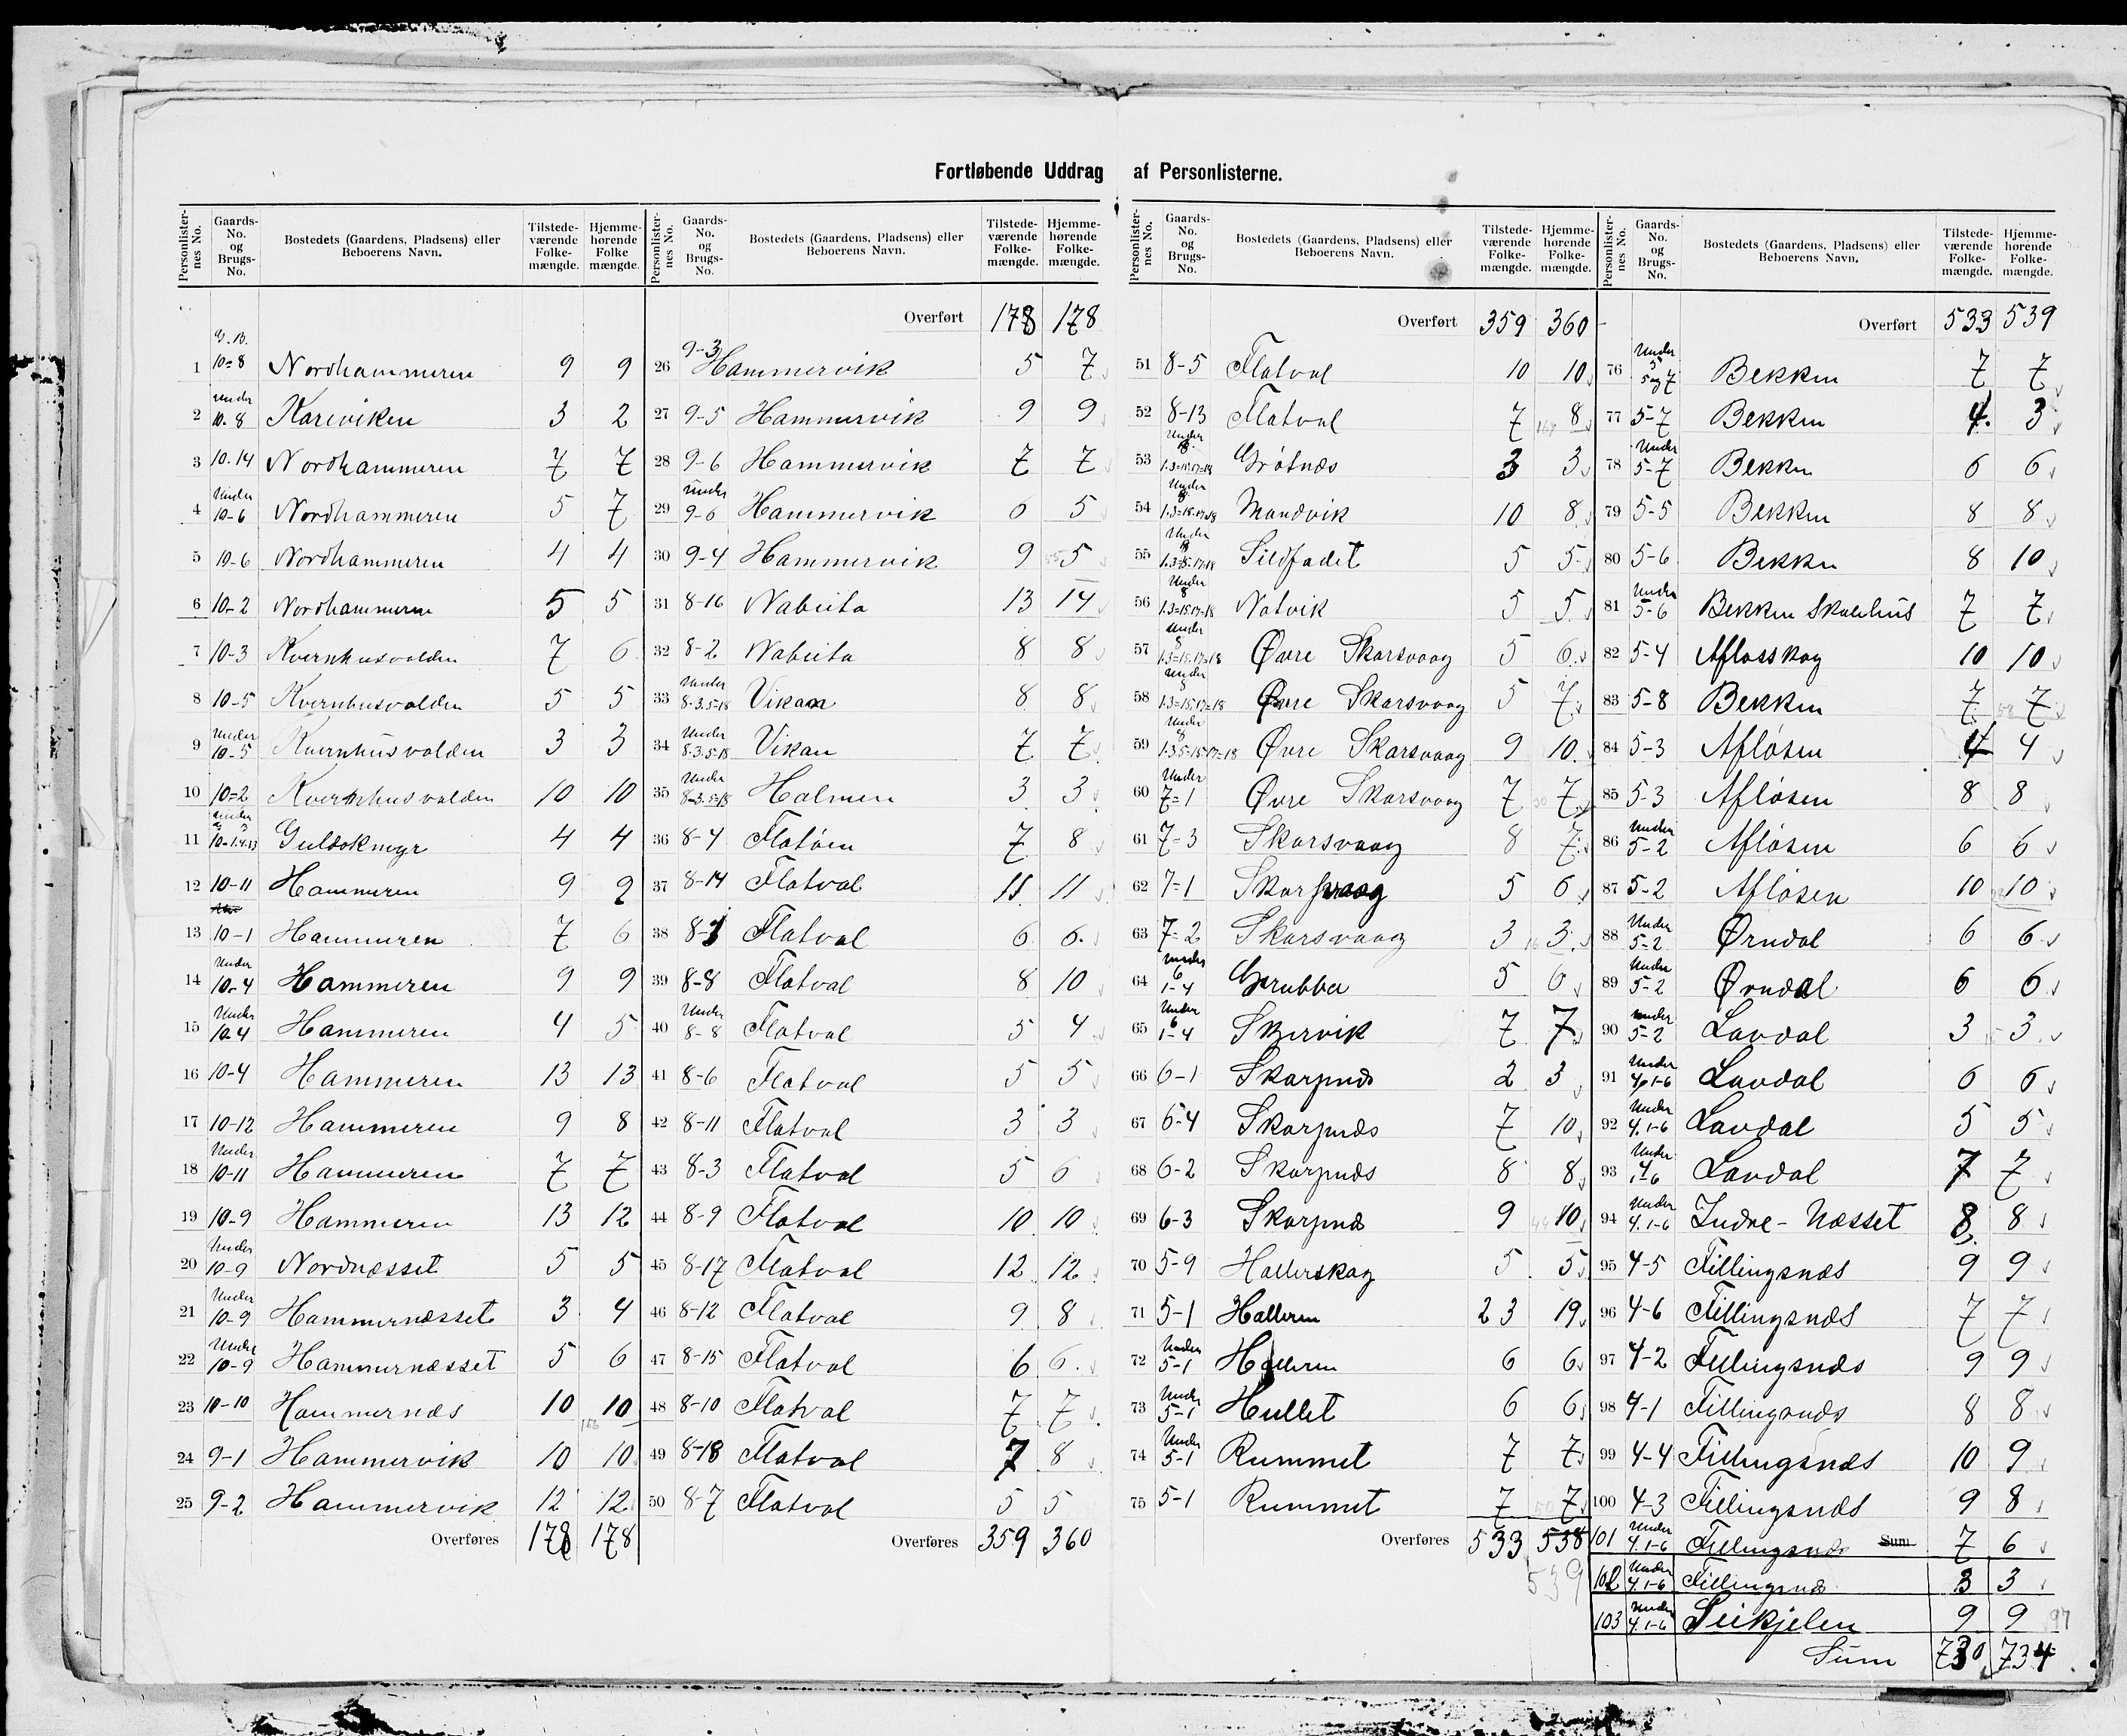 Fortløbende Uddrag af Personlisterne.
Personlisternes No. Gaards-No. og Brugs-No. Bostedets (Gaardens, Pladsens) eller Beboerens Navn. Tilstedeværende Folkemængde. Hjemmehørende Folkemængde.
G. B.
1 10=8 Nordhammeren 9 9
2 under 10-8 Kareviken 3 2
3 10.14 Nordhammeren 7 7
4 Under 10-6 Nordhammeren 5 7
5 10-6 Nordhammeren 4 4
6 10-2 Nordhammeren 5 5
7 10-3 Kvernhusvolden 7 6
8 10-5 Kvernhusvolden 5 5
9 Under 10-5 Kvernhusvolden 3 3
10 10=2 Kvernhusvolden 10 10
11 Guldokmyr 4 4
12 10-11 Hammeren 9 9
13 10-1 Hammeren 7 6
14 Under 10-4 Hammeren 9 9
15 Under 10-4 Hammeren 4 5
16 10-4 Hammeren 13 13
17 10-12 Hammeren 9 8
18 Under 10-11 Hammeren 7 7
19 10-9 Hammeren 13 12
20 Under 10-9 Nordnæsset 5 5
21 Under 10-9 Hammernæsset 3 4
22 Under 10-9 Hammernæsset 5 6
23 10-10 Hammernæs 10 10
24 9-1 Hammervik 10 10
25 9-2 Hammervik 12 12
Overføres 178 178
Personlisternes No. Gaards-No. og Brugs-No. Bostedets (Gaardens, Pladsens) eller Beboerens Navn. Tilstedeværende Folkemængde. Hjemmehørende Folkemængde.
Overført 178 178
26 9-3 Hammervik 5 7
27 9-5 Hammervik 9 9
28 9-6 Hammervik 7 7
29 under 9-6 Hammervik 6 5
30 9-4 Hammervik 9 5
31 8-16 Nabeita 13 14
32 8-2 Nabeita 8 8
33 Under 8.3.5=18 Vikan 8 8
34 Under 8.3.5-18 Vikan 7 7
35 Under 8-3.5=18 Holmen 3 3
36 8-4 Flatøen 7 8
37 8-14 Flatval 11 11
38 8-1 Flatval 6 6
39 8-8 Flatval 8 10
40 Under 8-8 Flatval 5 4
41 8-6 Flatval 5 5
42 8-11 Flatval 3 3
43 8-3 Flatval 5 6
44 8-9 Flatval 10 10
45 8-17 Flatval 12 12
46 8-12 Flatval 9 8
47 8-15 Flatval 6 6
48 8-10 Flatval 7 7
49 8-18 Flatval 7 8
50 8-7 Flatval 5 5
Overføres 359 360
Personlisternes No. Gaards-No. og Brugs-No. Bostedets (Gaardens, Pladsens) eller Beboerens Navn. Tilstedeværende Folkemængde. Hjemmehørende Folkemængde.
Overført 359 360
51 8-5 Flatval 10 10
52 8-13 Flatval 7 8
53 Under 8 1.3=15.17=18 Grøtnæs 3 3
54 Under 8 1.3=15.17=18 Mandvik 10 8
55 Under 8 1.3=15.17=18 Sildfadet 5 5
56 Under 8 1.3=15.17=18 Notvik 5 5
57 Under 8 1.3=15.17=18 Øvre Skarsvaag 5 6
58 Under 8 1.3=15.17=18 Øvre Skarsvaag 5 7
59 Under 8 1.3.5-15.17=18 Øvre Skarsvaag 9 10
60 Under 7=1 Øvre Skarsvaag 7 7
61 7=3 Skarsvaag 8 7
62 7=1 Skarsvaag 5 6
63 7=2 Skarsvaag 3 3
64 Under 6 1-4 Grubba 5 6
65 Under 6 1-4 Skervik 7 7
66 6-1 Skarpnæs 2 3
67 6-4 Skarpnæs 7 10
68 6-2 Skarpnæs 8 8
69 6-3 Skarpnæs 9 10
70 5-9 Hallerskag 5 5
71 5-1 Halleren 23 19
72 Under 5-1 Halleren 6 6
73 Under 5-1 Hullet 6 6
74 Under 5-1 Rummet 7 7
75 5-1 Rummet 7 7
Overføres 533 538
539
Personlisternes No. Gaards-No. og Brugs-No. Bostedets (Gaardens, Pladsens) eller Beboerens Navn. Tilstedeværende Folkemængde. Hjemmehørende Folkemængde.
Overført 533 539
76 Under 5 5 og 7 Bekken 7 7
77 5-7 Bekken 4 3
78 Under 5-7 Bekken 6 6
79 5-5 Bekken 8 8
80 5-6 Bekken 8 10
81 Under 5-6 Bekken Skolehus 7 7
82 5-4 Afløsskag 10 10
83 5-8 Bekken 7 7
84 5-3 Afløsen 4 4
85 5-3 Afløsen 8 8
86 Under 5-2 Afløsen 6 6
87 5-2 Afløsen 10 10
88 Under 5-2 Ørndal 6 6
89 Under 5-2 Ørndal 6 6
90 Under 5-2 Lavdal 3 3
91 Under 4, 1-6 Lavdal 6 6
92 Under 4. 1-6 Lavdal 5 5
93 Under 4 1-6 Lavdal 7 7
94 Under 4. 1-6 Indre-Næsset 8 8
95 4-5 Fillingsnæs 9 9
96 4-6 Fillingsnæs 7 7
97 4-2 Fillingsnæs 9 9
98 4-1 Fillingsnæs 8 8
99 4-4 Fillingsnæs 10 9
100 4-3 Fillingsnæs 9 8
101 Under 4. 1-6 Fillingsnæs Sum 7 6
102 Under 4. 1-6 Fillingsnæs 3 3
103 Under 4. 1-6 Seikjelen 9 9
Sum 730 734